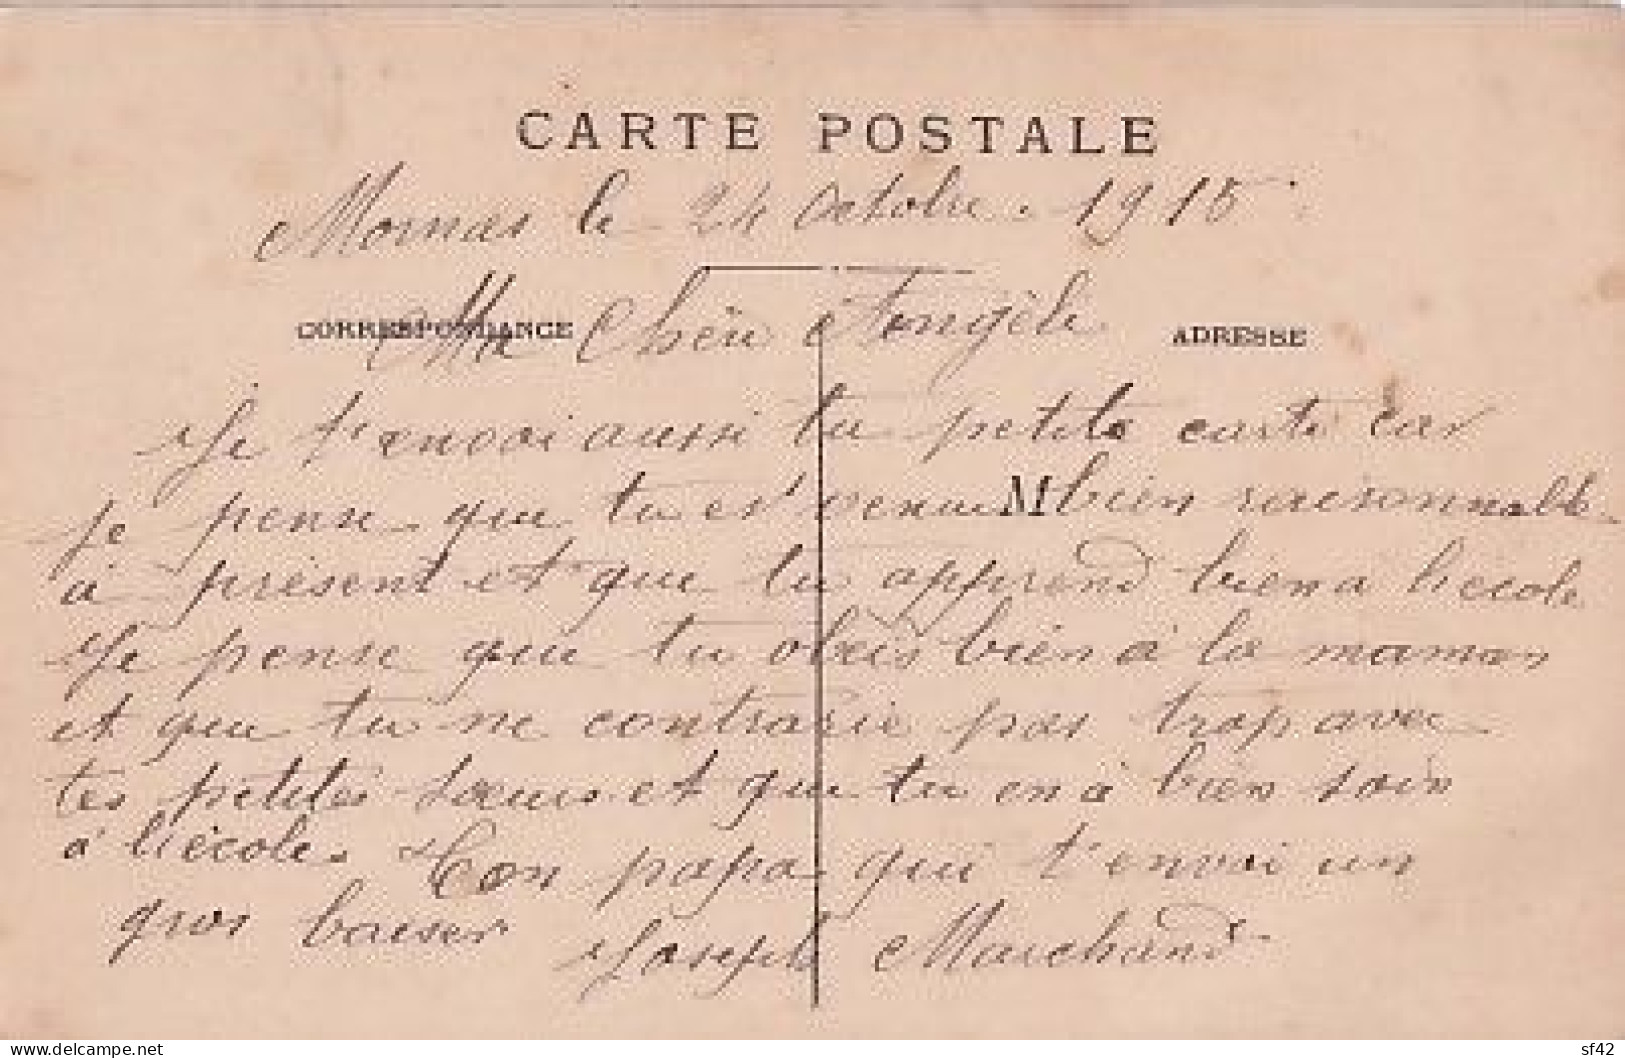 CARTE POSTALE
Mornas le 24 Octobre 1915
CORRESPONDANCE
ADRESSE
Ma Chère Angèle
Je t'envoi aussi ta petite carte car
M
je pense que tu es venue bien raisonnable
à présent et que tu apprend bien a l'école
Je pense que tu obéis bien à la maman
et que tu ne contrarie pas trop avec
tes petites sœurs et que tu en à bien soin
à l'école. Ton papa qui t'envoi un
gros baiser Joseph Marchand
Delcampe.net
sf42